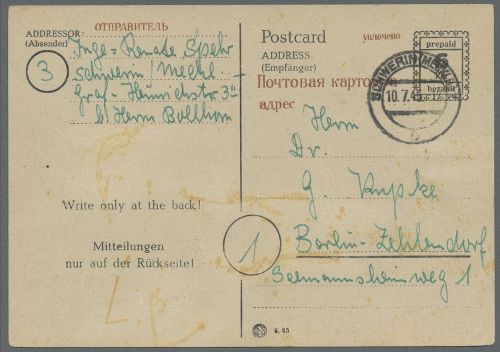 ОТПРАВИТЕЛЬ
ADDRESSOR:
(Absender)
Inge-Renate Spehr
3
Schwerin/Meckl.
Graf-Heinrichstr 3
b/ Herrn Bollhorn
Write only at the back!
Mitteilungen
nur auf der Rückseite!
Postcard
уплочено
ADDRESS
(Empfänger)
Почтовая карто
адрес
prepaid
6
bezahlt
SCHWERIN
10.7.45
b
Herrn
Dr.
G. Kupke
1
Berlin-Zehlendorf
Seemannsheimweg 1
6.45